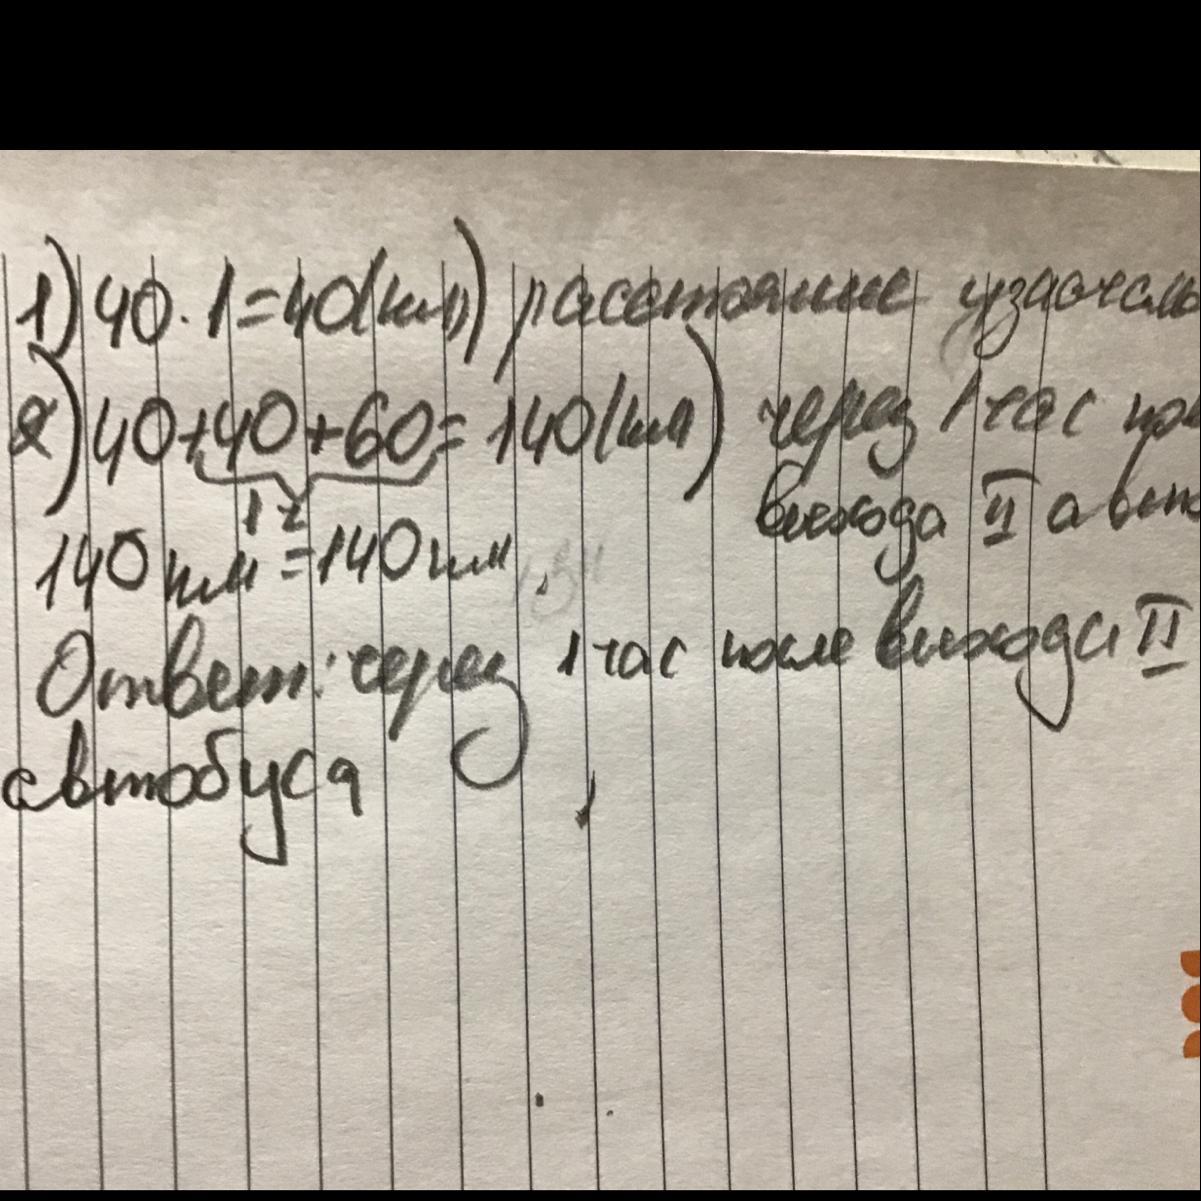 1) 40 · 1 = 40 (км) расстояние
2) 40 + 40 + 60 = 140 (км) через 1 час
1 ч выхода II авто
140 км = 140 км
Ответ: через 1 час после выхода II
автобуса